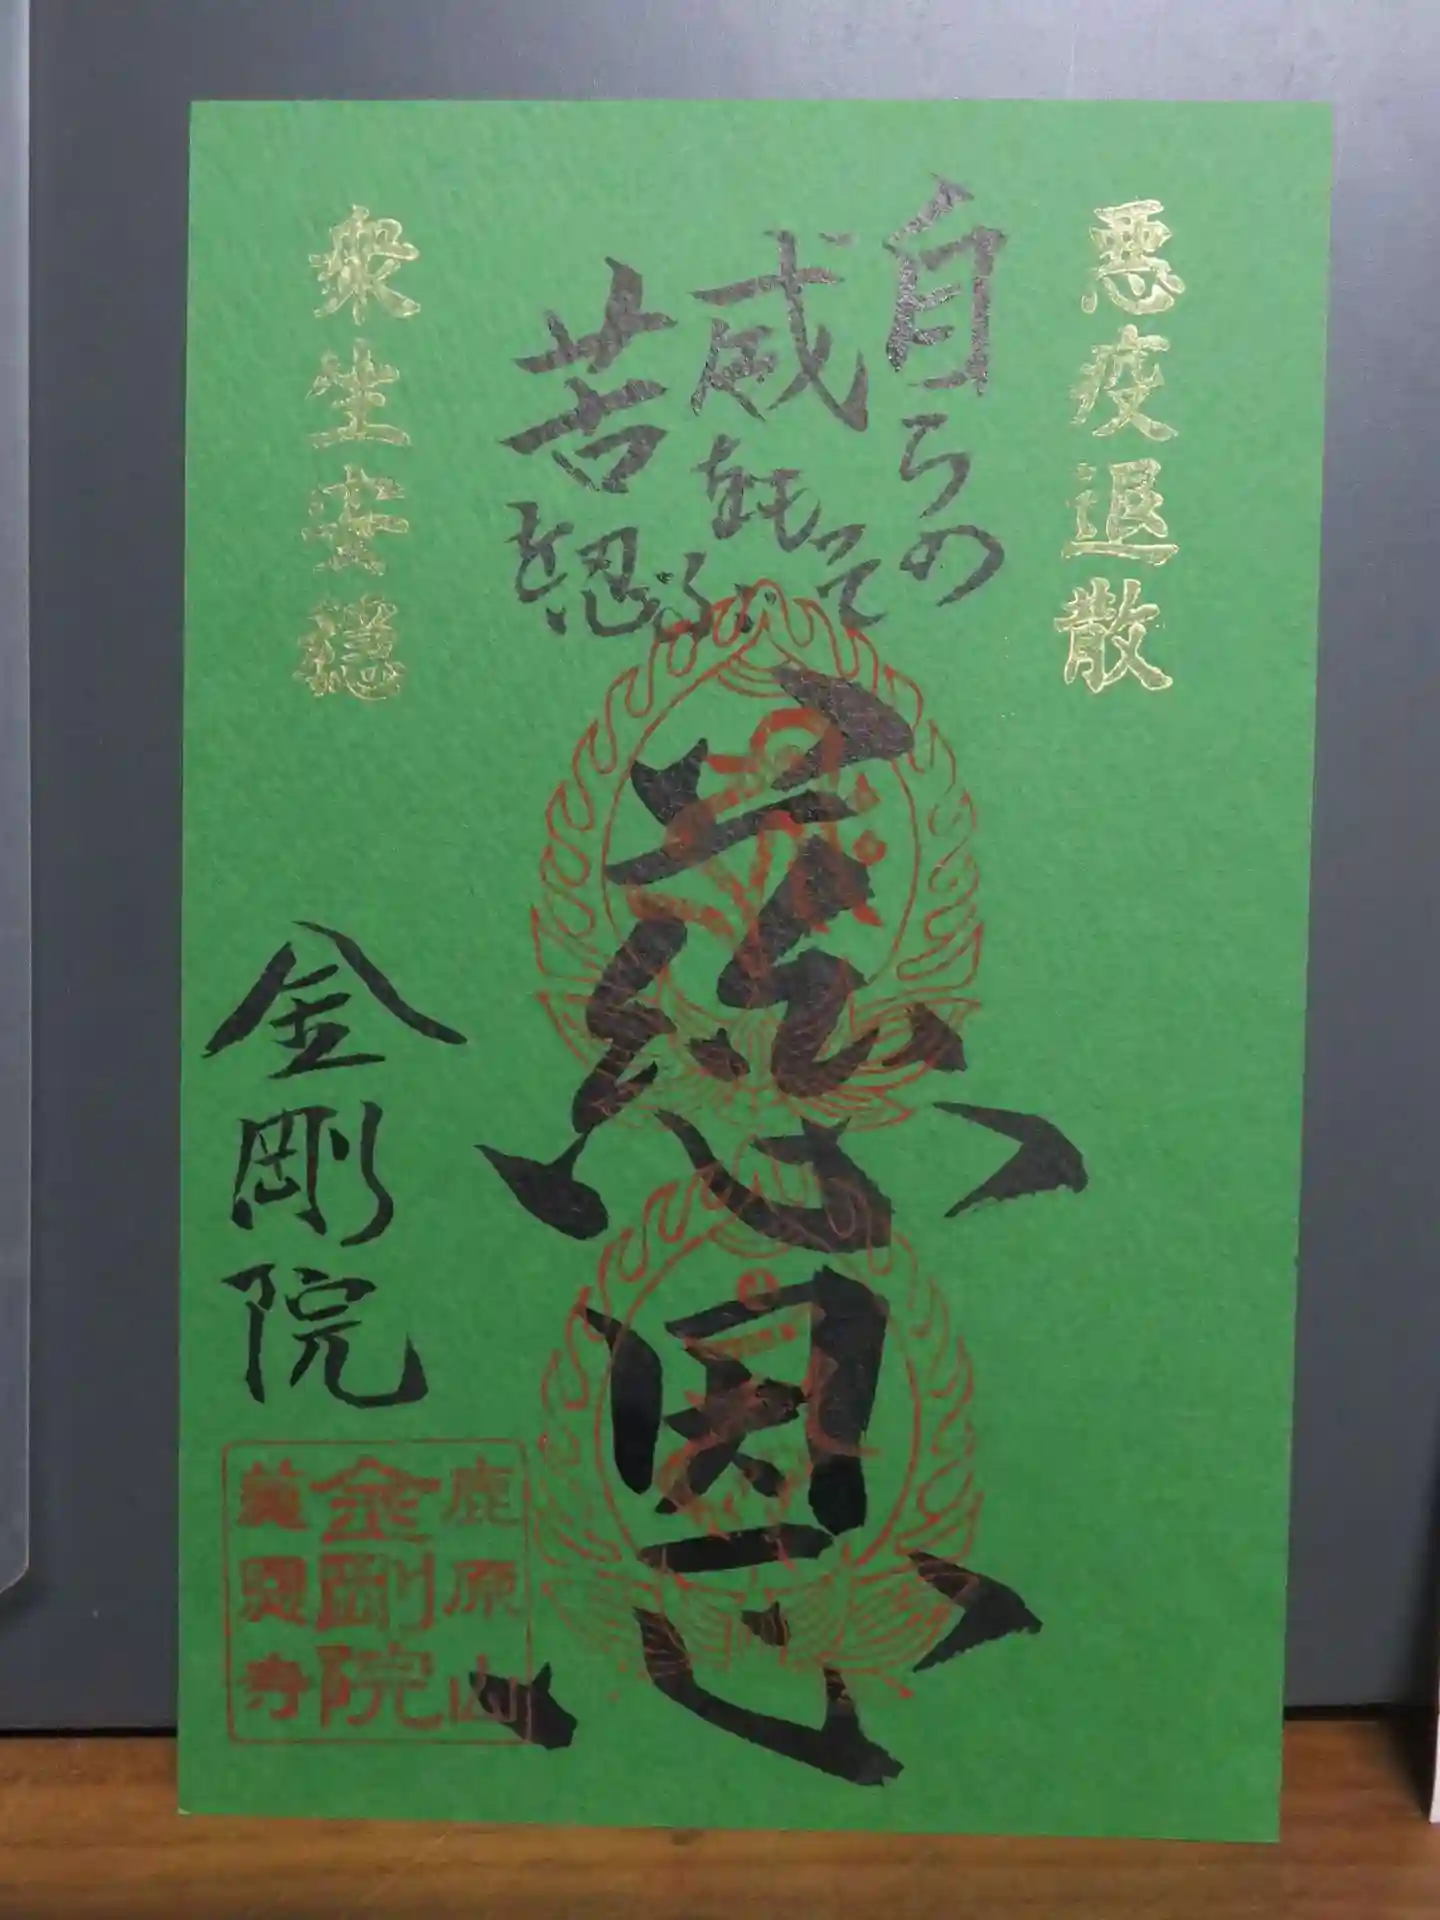 悪疫退散
自らの
威をもって
苦を忍る
慈恩
衆生安穏
金剛院
鹿原山
金剛院
慈恩寺